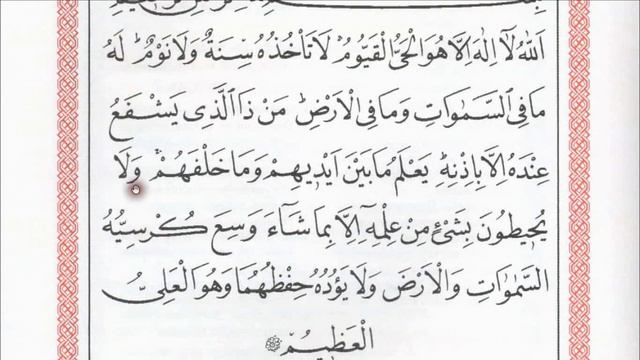 اَللّٰهُ لَٓا اِلٰهَ اِلَّا هُوَ الْحَىُّ الْقَيُّومُ لَا تَاْخُذُهُ سِنَةٌ وَلَا نَوْمٌ لَهُ
مَا فِى السَّمٰوَاتِ وَمَا فِى الْاَرْضِ مَنْ ذَا الَّذِى يَشْفَعُ
عِنْدَهُ اِلَّا بِاِذْنِهِ يَعْلَمُ مَا بَيْنَ اَيْدِيهِمْ وَمَا خَلْفَهُمْ وَلَا
يُحِيطُونَ بِشَىْءٍ مِنْ عِلْمِهِ اِلَّا بِمَا شَٓاءَ وَسِعَ كُرْسِيُّهُ
السَّمٰوَاتِ وَالْاَرْضَ وَلَا يَؤُدُهُ حِفْظُهُمَا وَهُوَ الْعَلِىُّ
الْعَظِيمُ